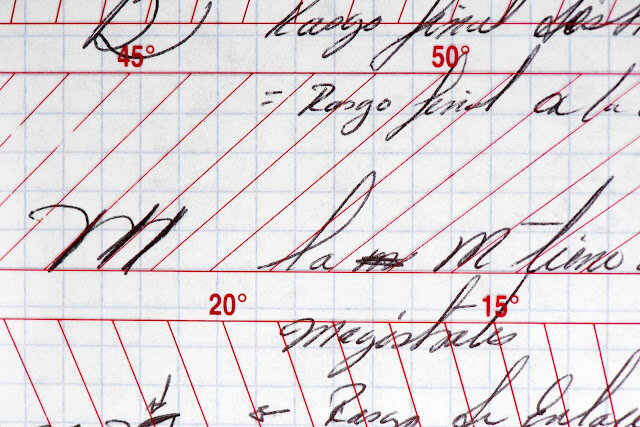 B Rasgo final
45° 50°
= Rasgo final a la
M la m M tiene
20° 15°
magistrales
← Rasgo de Enla